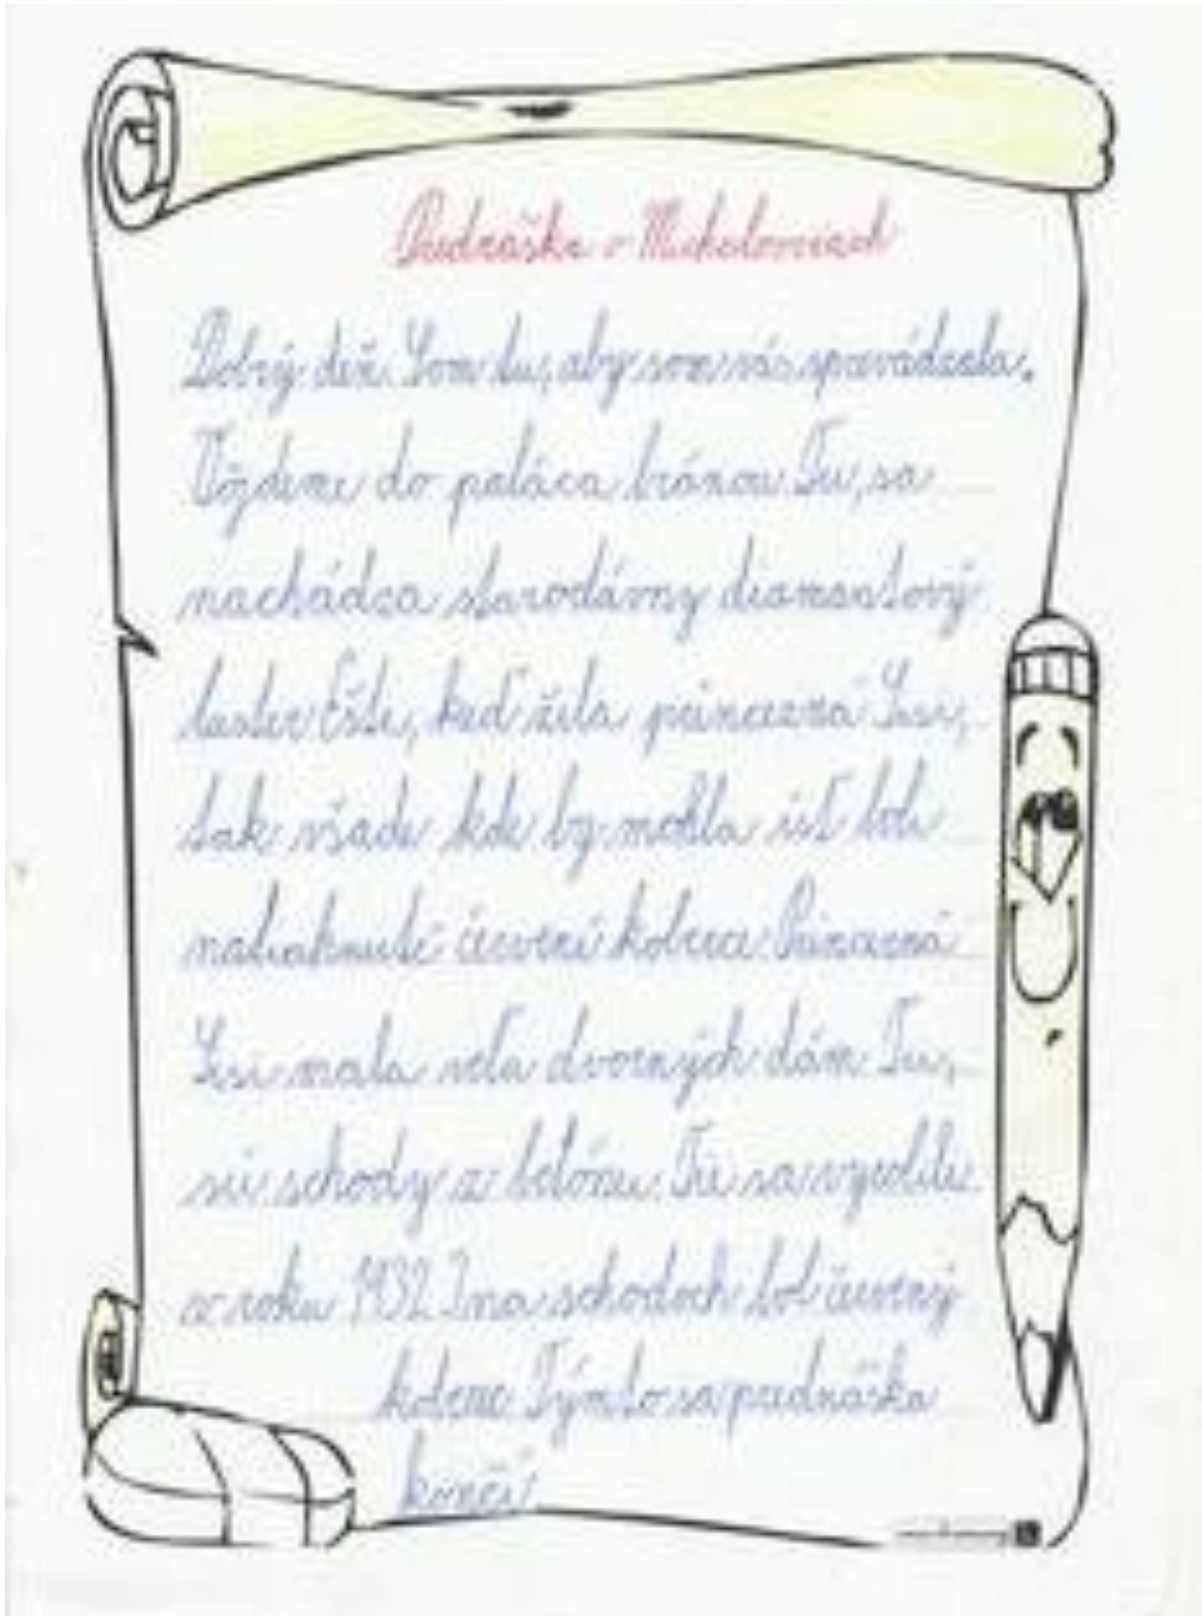 Prednáška v Michalovciach
Dobrý deň. Som tu, aby som vás sprevádzala.
Vôjdeme do paláca bránou. Tu, sa
nachádza starodávny diamantový
luster. Ešte, keď žila princezná Sisi,
tak všade kde by mohla ísť bole
natiahnuté červené koberce. Princezná
Sisi mala veľa dvorných dám. Tu,
sú schody z betónu. Tie sa vyrobili
z roku 1932. I na schodoch bol červený
koberec. Týmto sa prednáška
končí.